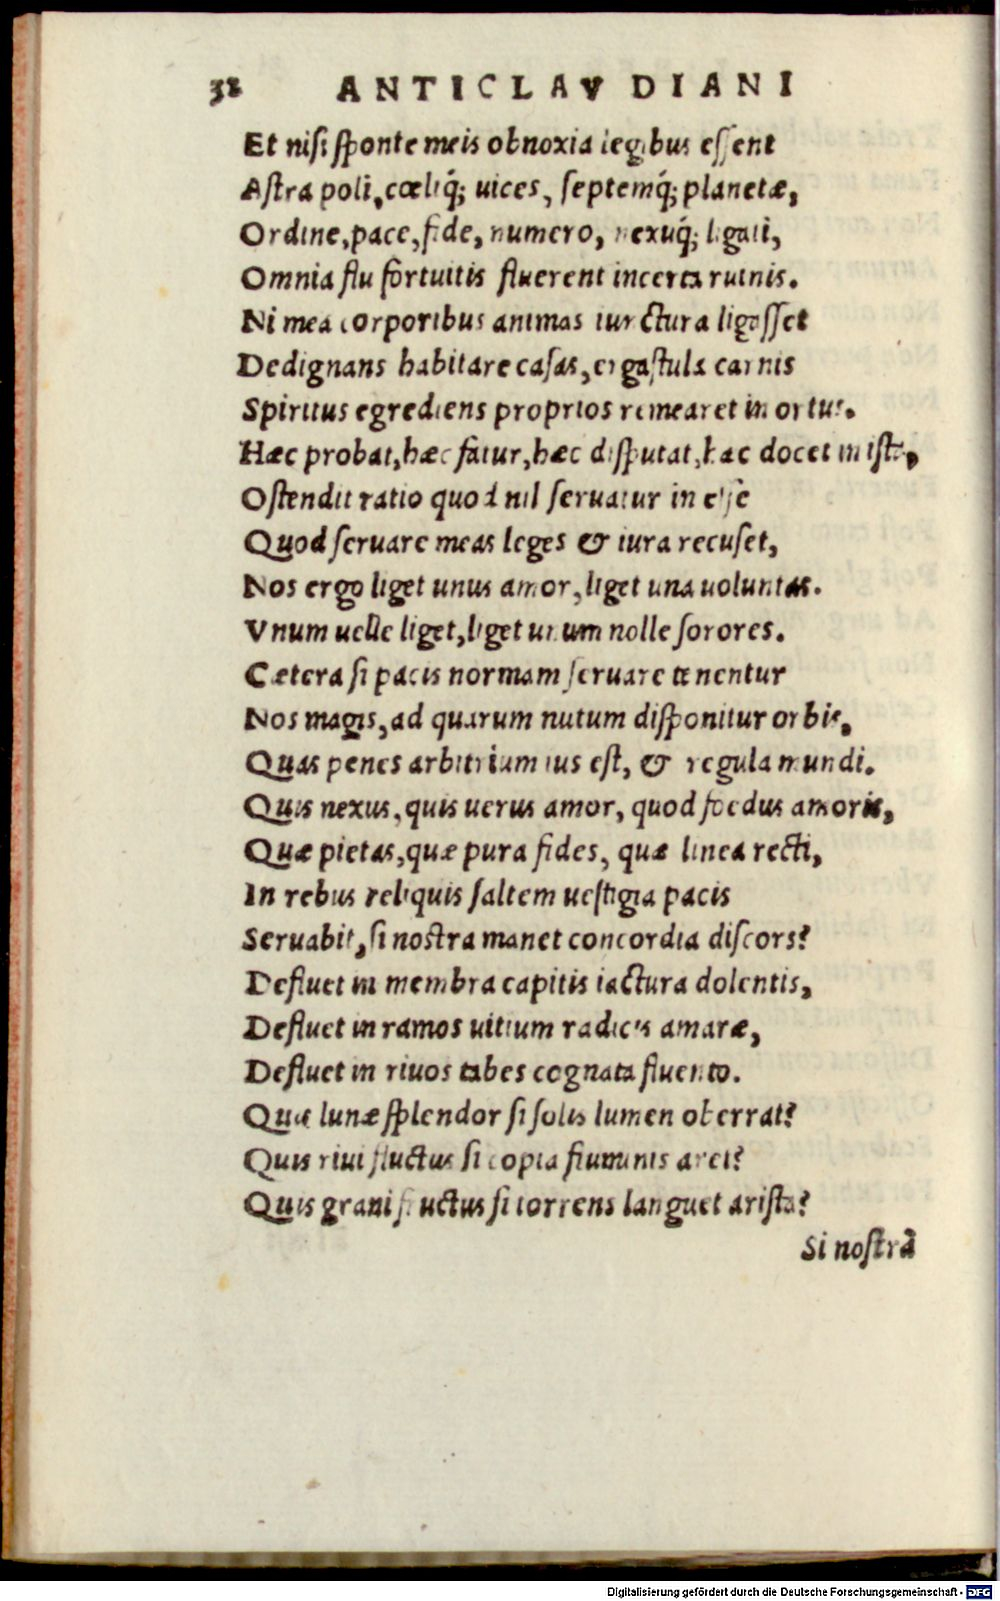 38 ANTICLAVDIANI
Et nisi sponte meis obnoxia legibus essent
Astra poli, cœliq́; uices, septemq́; planetæ,
Ordine, pace, fide, numero, nexuq́; ligati,
Omnia flu fortuitis fluerent incerta ruinis.
Ni mea corporibus animas iunctura ligasset
Dedignans habitare casas, ergastula carnis
Spiritus egrediens proprios remearet in ortus.
Hæc probat, hæc fatur, hæc disputat, hac docet in ista,
Ostendit ratio quod nil seruatur in esse
Quod seruare meas leges & iura recuset,
Nos ergo liget unus amor, liget una uoluntas.
Vnum uelle liget, liget unum nolle sorores.
Cætera si pacis normam seruare tenentur
Nos magis, ad quarum nutum disponitur orbis,
Quas penes arbitrium ius est, & regula mundi.
Quis nexus, quis uerus amor, quod fœdus amoris,
Quæ pietas, quæ pura fides, quæ linea recti,
In rebus reliquis saltem uestigia pacis
Seruabit, si nostra manet concordia discors?
Defluet in membra capitis iactura dolentis,
Defluet in ramos uitium radicis amaræ,
Defluet in riuos tabes cognata fluento.
Quæ lunæ splendor si solis lumen oberrat?
Quis riui fluctus si copia fluminis aret?
Quis grani fructus si torrens languet arista?
Si nostrã
Digitalisierung gefördert durch die Deutsche Forschungsgemeinschaft - DFG